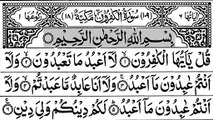 سُورَةُ الْكٰفِرُونَ مَكِّيَّةٌ
بِسْمِ اللّٰهِ الرَّحْمٰنِ الرَّحِيْمِ
قُلْ يٰٓاَيُّهَا الْكٰفِرُوْنَ ۙ لَآ اَعْبُدُ مَا تَعْبُدُوْنَ ۙ وَلَآ
اَنْتُمْ عٰبِدُوْنَ مَآ اَعْبُدُ ۚ وَلَآ اَنَا عَابِدٌ مَّا عَبَدْتُّمْ ۙ وَلَآ
اَنْتُمْ عٰبِدُوْنَ مَآ اَعْبُدُ ؕ لَكُمْ دِيْنُكُمْ وَلِيَ دِيْنِ